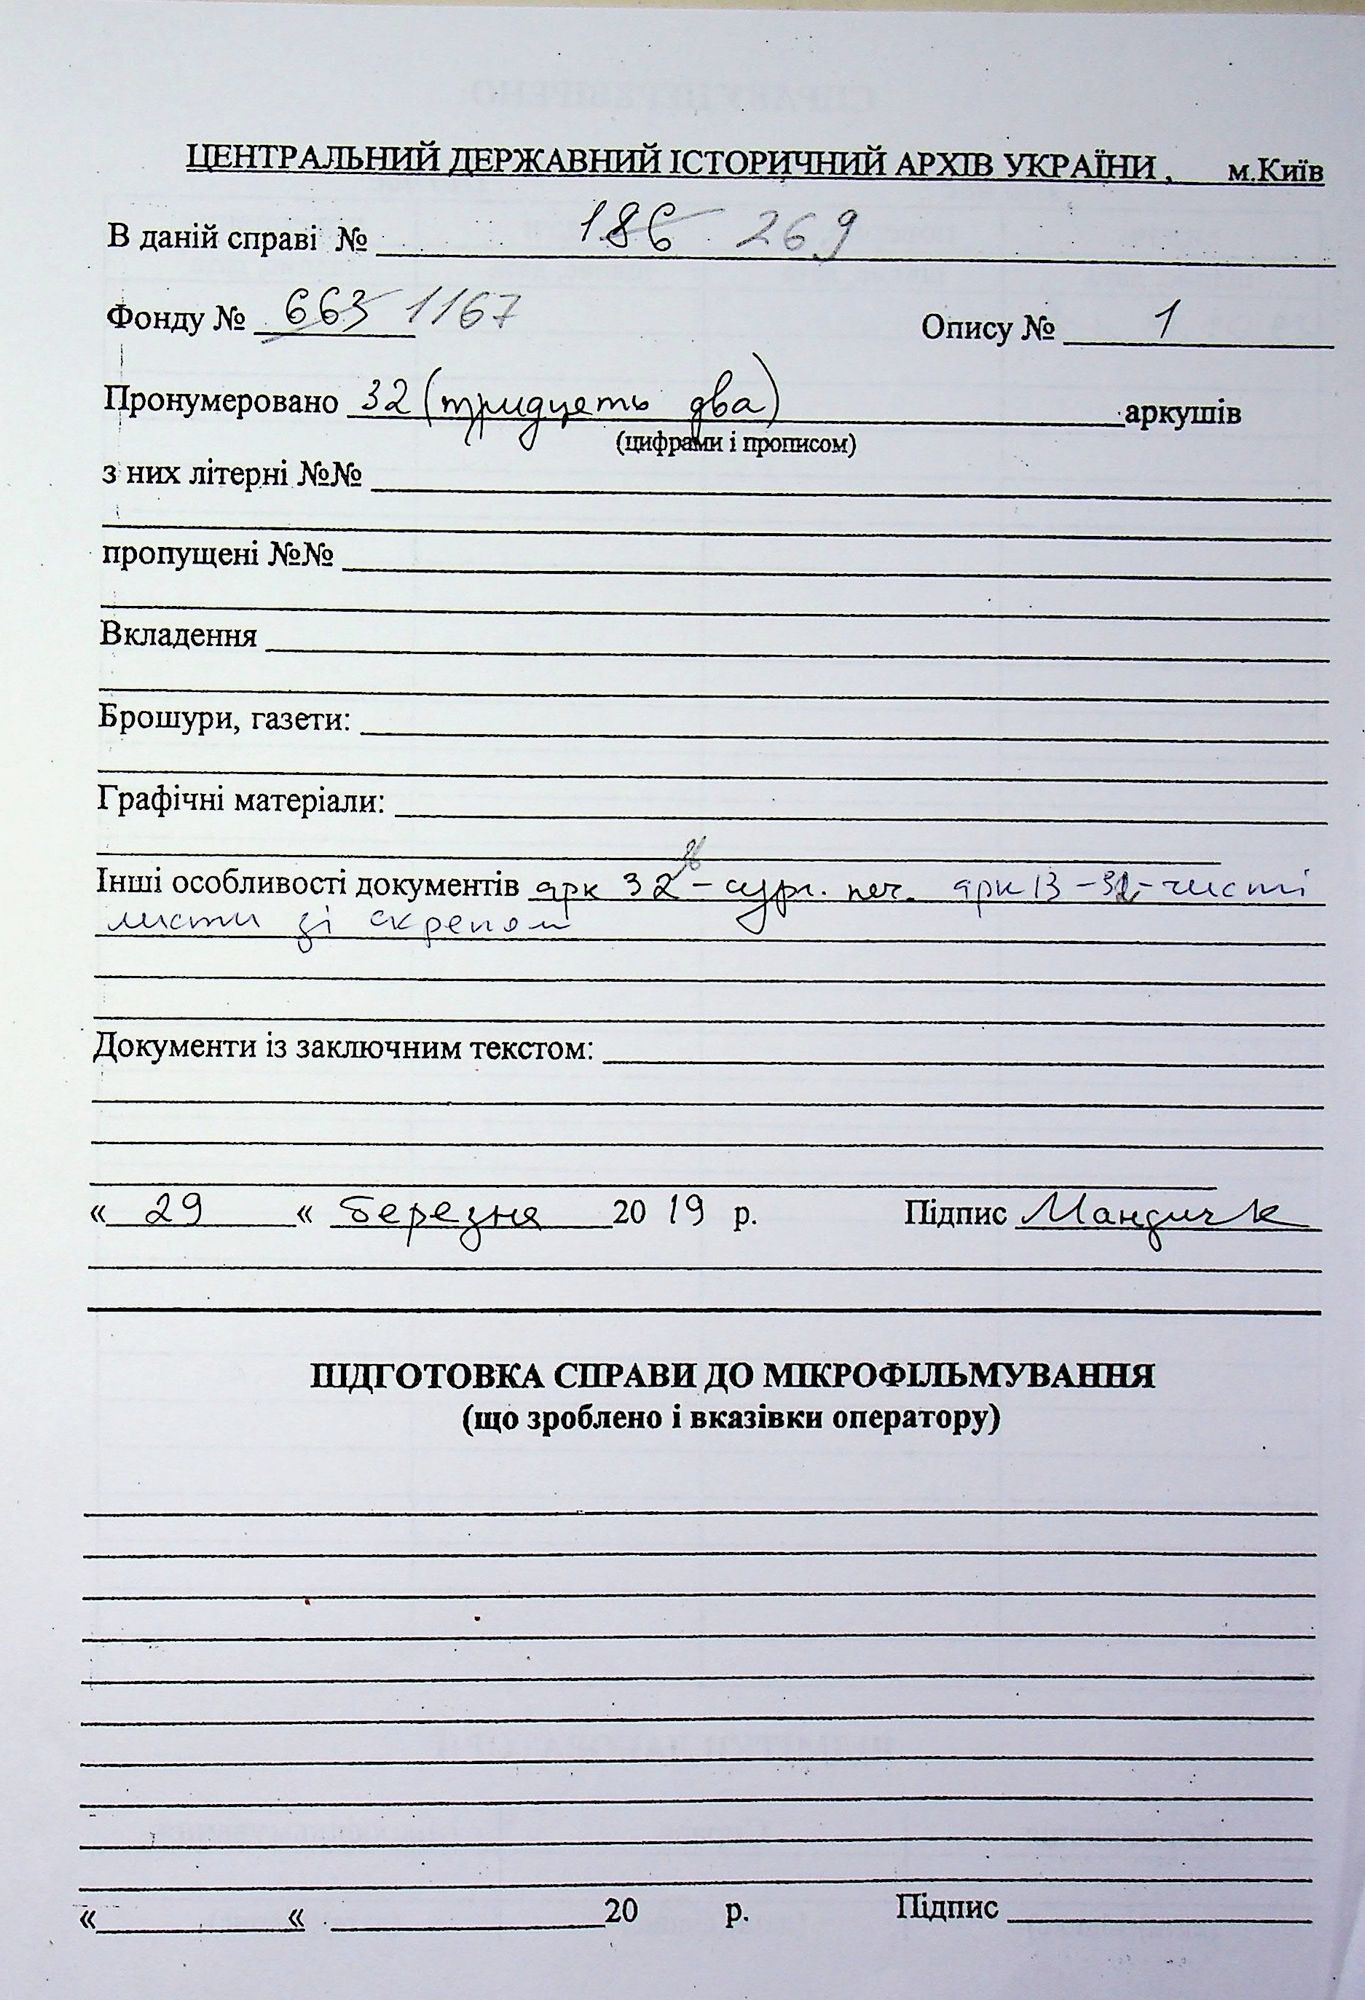 ЦЕНТРАЛЬНИЙ ДЕРЖАВНИЙ ІСТОРИЧНИЙ АРХІВ УКРАЇНИ, м.Київ
В даній справі № 186 269
Фонду № 663 1167 Опису № 1
Пронумеровано 32 (тридцять два) аркушів
(цифрами і прописом)
з них літерні №№
пропущені №№
Вкладення
Брошури, газети:
Графічні матеріали:
Інші особливості документів арк 32 - сург. печ. арк 13 - 32 - чисті
листи зі скрепом
Документи із заключним текстом:
« 29 « березня 2019 р. Підпис
ПІДГОТОВКА СПРАВИ ДО МІКРОФІЛЬМУВАННЯ
(що зроблено і вказівки оператору)
« « 20 р. Підпис